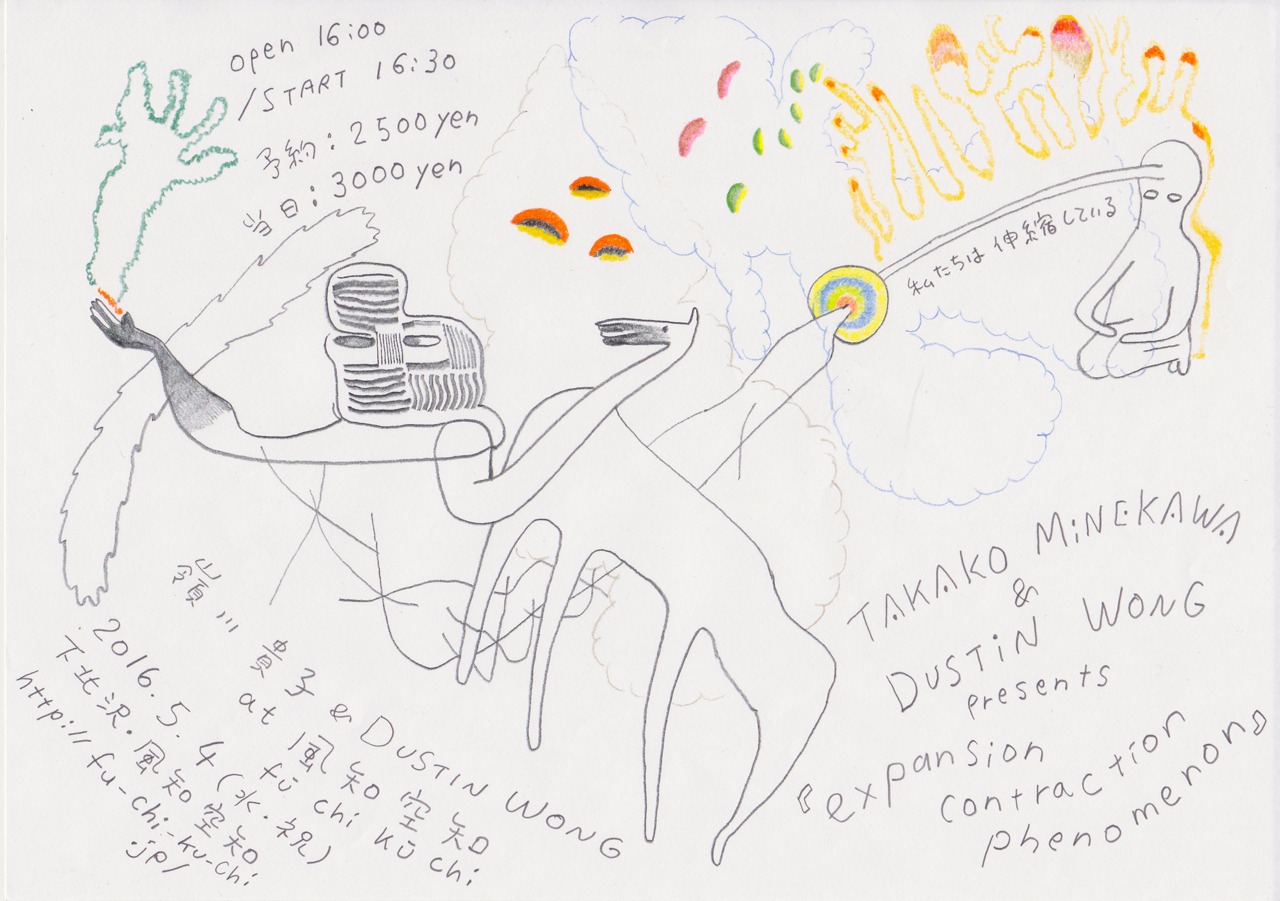 open 16:00
/START 16:30
予約:2500yen
当日:3000yen
私たちは伸縮している
TAKAKO MiNEKAWA
&
DUSTiN WONG
presents
『expansion
contraction
phenomenon』
嶺川 貴子 & DUSTIN WONG
at 風知空知
fū chi kū chi
2016.5.4(水・祝)
下北沢・風知空知
http://fu-chi-ku-chi
.jp/